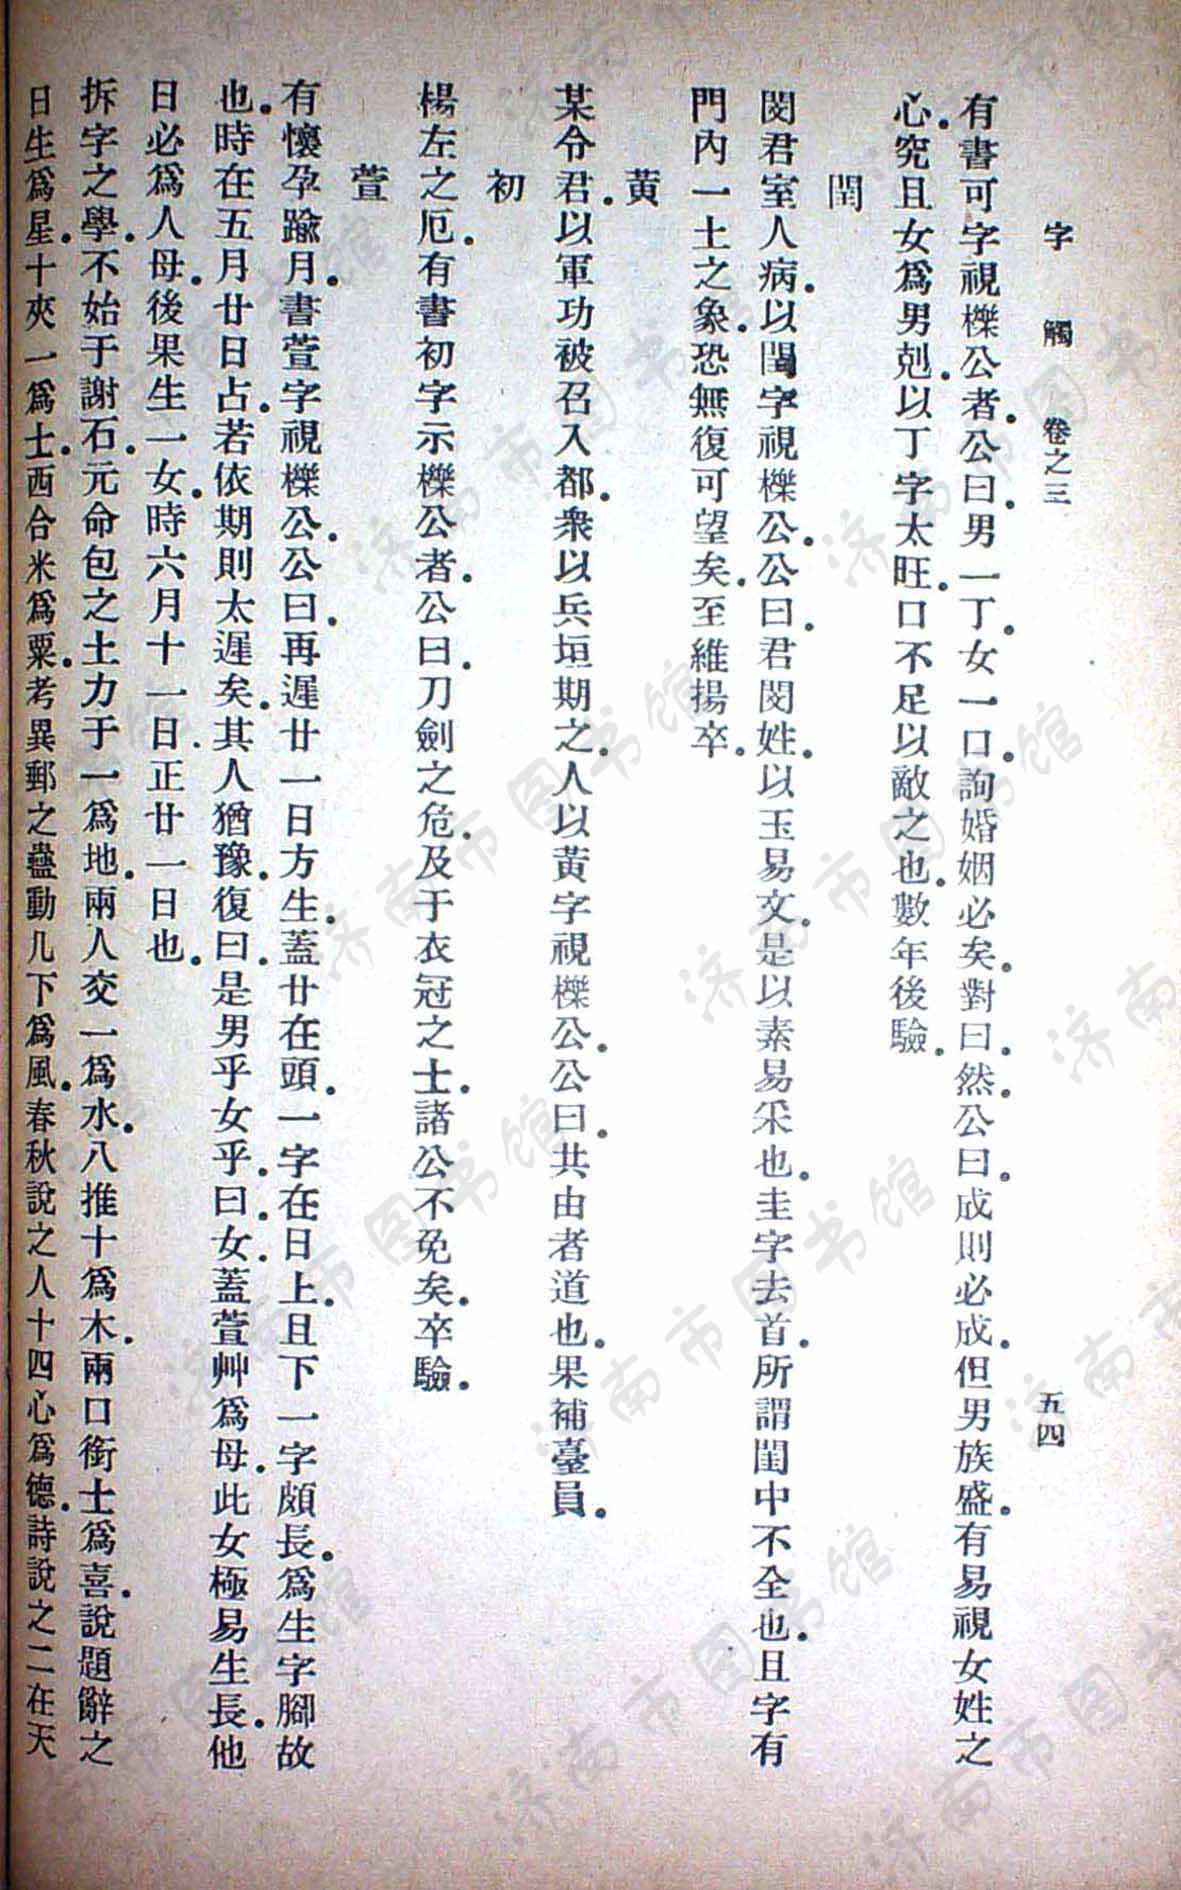 字觸 卷之三 五四
有書可字視櫟公者。公曰。男一丁。女一口。詢婚姻必矣。對曰。然。公曰。成則必成。但男族盛。有易視女姓之
心。究且女爲男剋。以丁字太旺。口不足以敵之也。數年後驗。
閨
閔君室人病。以閨字視櫟公。公曰。君閔姓。以玉易文。是以素易采也。圭字去首。所謂閨中不全也。且字有
門內一土之象。恐無復可望矣。至維揚卒。
黃
某令君。以軍功被召入都。衆以兵垣期之。人以黃字視櫟公。公曰。共由者道也。果補臺員。
初
楊左之厄。有書初字示櫟公者。公曰。刀劍之危。及于衣冠之士。諸公不免矣。卒驗。
萱
有懷孕踰月。書萱字視櫟公。公曰。再遲廿一日方生。蓋廿在頭。一字在日上。且下一字頗長。爲生字腳故
也。時在五月廿日占。若依期則太遲矣。其人猶豫。復曰。是男乎女乎。曰。女。蓋萱艸爲母。此女極易生長。他
日必爲人母。後果生一女。時六月十一日。正廿一日也。
拆字之學。不始于謝石。元命包之土力于一爲地。兩人交一爲水。八推十爲木。兩口銜士爲喜。說題辭之
日生爲星。十夾一爲士。西合米爲粟。考異郵之蟲動几下爲風。春秋說之人十四心爲德。詩說之二在天